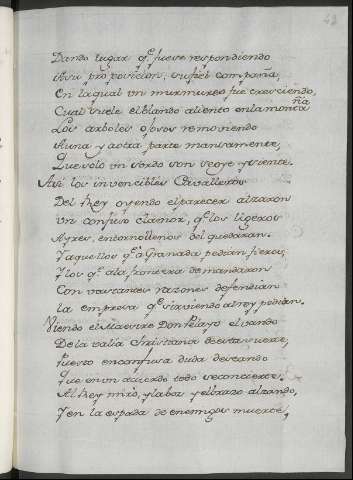 Dando lugar q.e fuese respondiendo
A su proposicion, su fiel compaña,
En la qual un murmureo fue creciendo,
Cual suele el blando aliento en la montaña
Los arboles ojosos removiendo
A una y a otra parte mansamente,
Que solo un sordo son se oye, y siente.
Asi los invencibles Cavalleros
Del Rey oyendo el parecer alzaron
Un confuso clamor, q.e los ligeros
Ayres, entorno llenos del quedaron.
Y aquellos q.e a Granada pedian fieros,
Y los q.e a la frontera demandaron
Con vastantes razones defendian
la empresa q.e sirviendo al rey pedian.
Viendo el Maestre Don Pelayo el vando
De la valia Cristiana de esta suerte,
Puesto en confusa duda deseando
Que en un acuerdo todo se concierte.
Al Rey miró, y la voz y el brazo alzando,
Y en la espada de enemigos muerte,